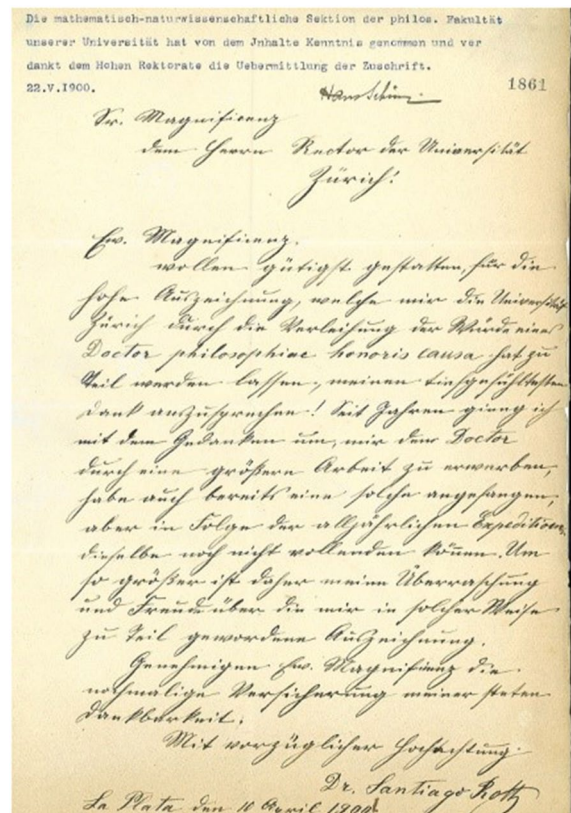 Die mathematisch-naturwissenschaftliche Sektion der philos. Fakultät
unserer Universität hat von dem Jnhalte Kenntnis genommen und ver
dankt dem Hohen Rektorate die Uebermittlung der Zuschrift.
22.V.1900.
Hans Schinz.
1861
Sr. Magnificenz
dem Herrn Rector der Universität
Zürich!
Ew. Magnificenz.
wollen gütigst gestatten, für die
hohe Auszeichnung, welche mir die Universität
Zürich durch die Verleihung der Würde eines
Doctor philosophiae honoris causa hat zu
Teil werden lassen, meinen tiefgefühltesten
Dank auszusprechen! Seit Jahren gieng ich
mit dem Gedanken um, mir den Doctor
durch eine größere Arbeit zu erwerben,
habe auch bereits eine solche angefangen,
aber in Folge der alljährlichen Expeditionen
dieselbe noch nicht vollenden können. Um
so größer ist daher meine Überraschung
und Freude über die mir in solcher Weise
zu Teil gewordene Auszeichnung.
Genehmigen Ew. Magnificenz die
nochmalige Versicherung meiner steten
Dankbarkeit.
Mit vorzüglicher Hochachtung.
Dr. Santiago Roth
La Plata den 10 April 1900